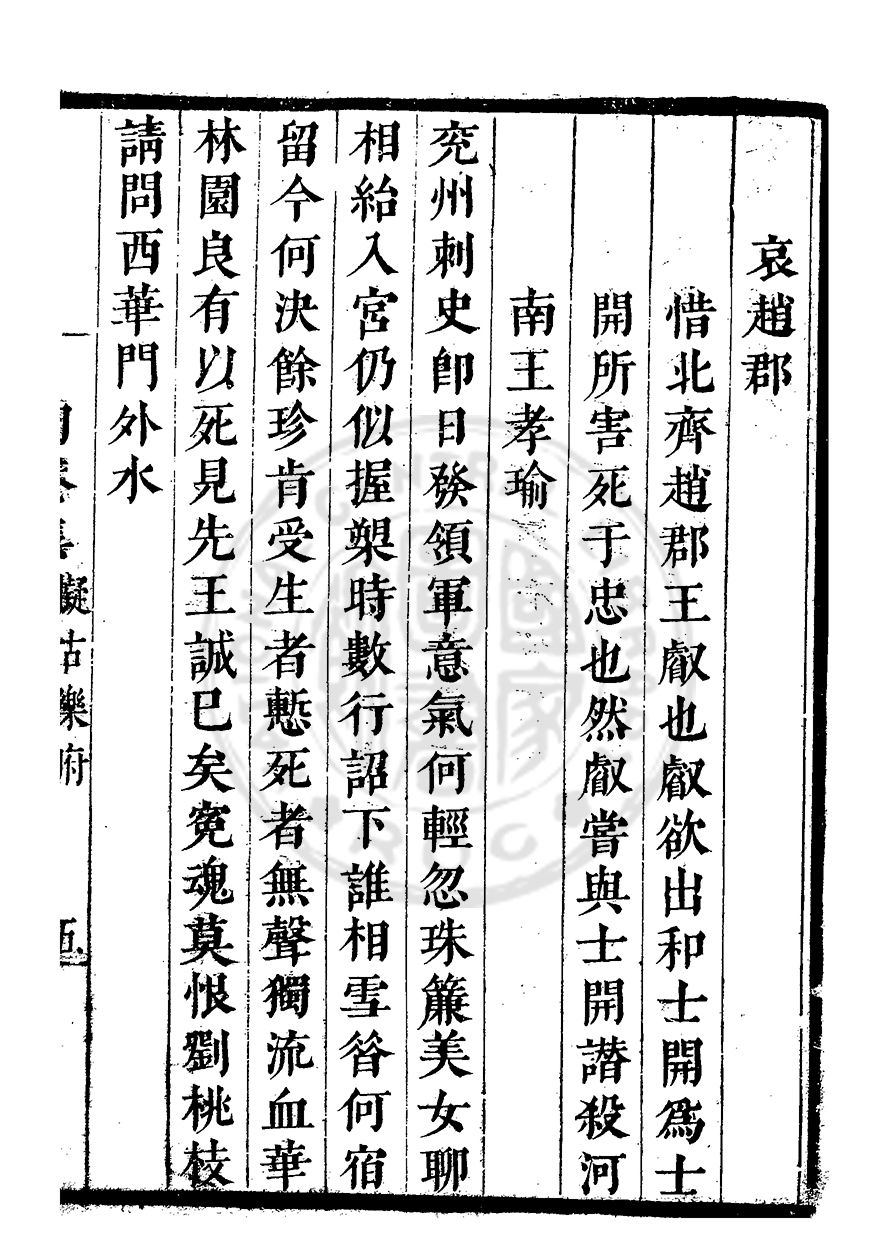 哀趙郡
惜北齊趙郡王叡也叡欲出和士開爲士
開所害死于忠也然叡嘗與士開譖殺河
南王孝瑜
兖州刺史卽日發領軍意氣何輕忽珠簾美女聊
相紿入宮仍似握槊時數行詔下誰相雪昝何宿
留今何決餘珍肯受生者慙死者無聲獨流血華
林園良有以死見先王誠已矣寃魂莫恨劉桃枝
請問西華門外水
擬古樂府
五